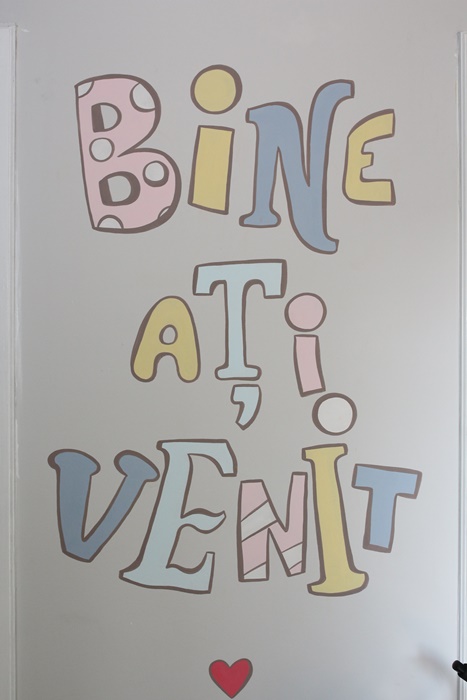 BiNE
AȚi
VENIT